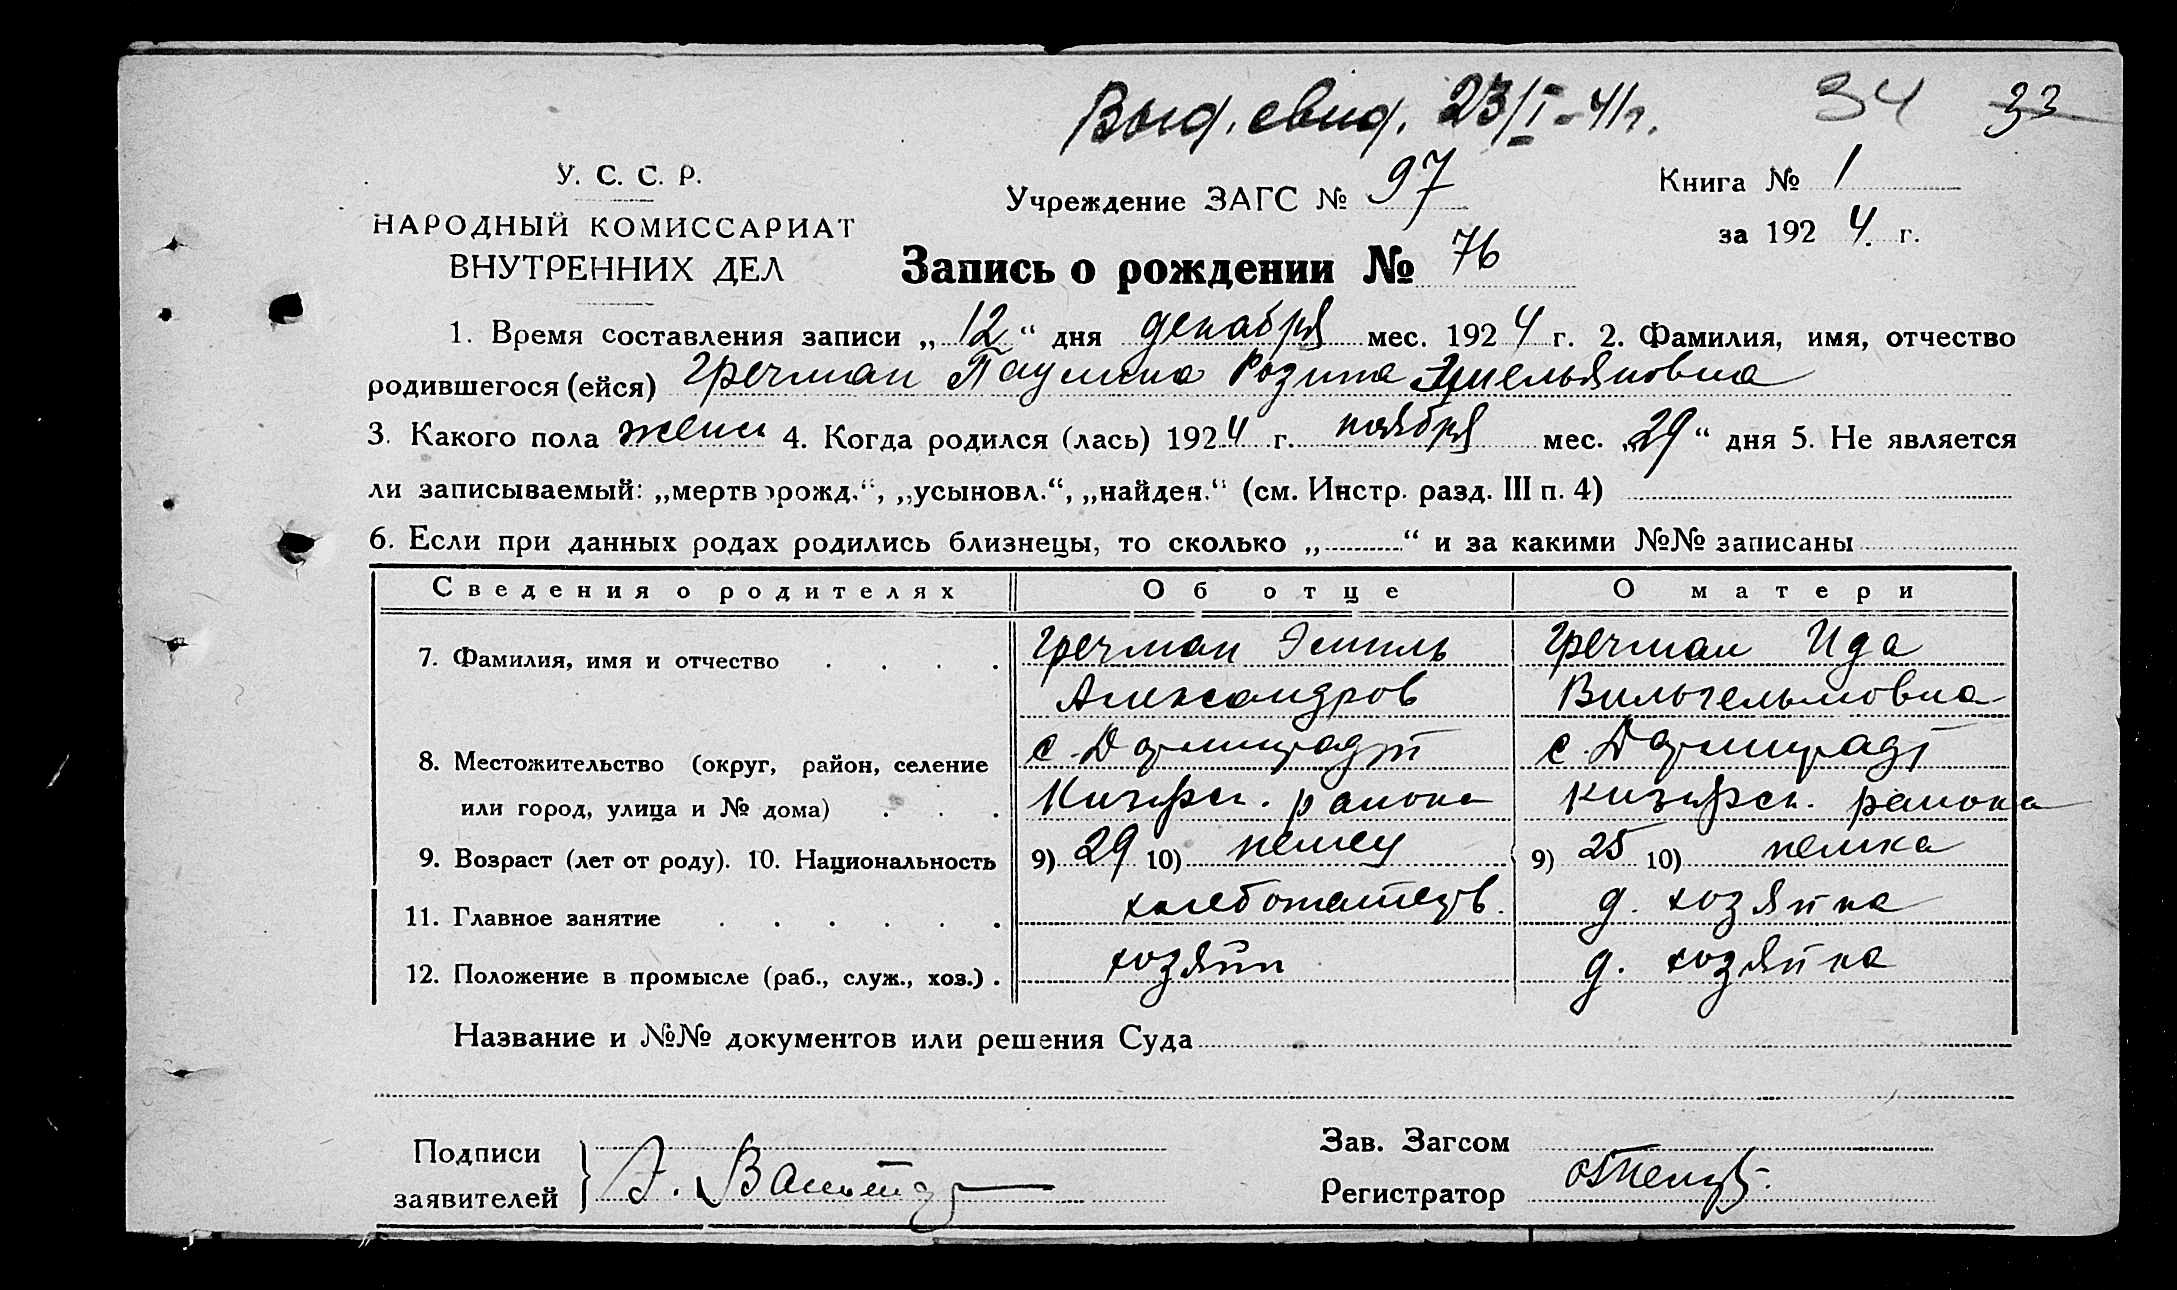 Выд. свид. 23/I-41г. 34 33
У. С. С. Р.
НАРОДНЫЙ КОМИССАРИАТ
ВНУТРЕННИХ ДЕЛ
Учреждение ЗАГС № 97
Книга № 1
за 1924. г.
Запись о рождении № 76
1. Время составления записи „12“ дня декабря мес. 1924 г. 2. Фамилия, имя, отчество
родившегося (ейся) Гречман Паулина Розина Эмельяновна
3. Какого пола женск 4. Когда родился (лась) 1924 г. ноября мес. „29“ дня 5. Не является
ли записываемый: „мертворожд.“, „усыновл.“, „найден.“ (см. Инстр. разд. III п. 4)
6. Если при данных родах родились близнецы, то сколько „ “ и за какими №№ записаны
Сведения о родителях Об отце О матери
7. Фамилия, имя и отчество . . . . Гречман Эмиль Гречман Ида
Александров Вильгельмовна
8. Местожительство (округ, район, селение с. Дармштадт с. Дармштадт
или город, улица и № дома) . . . района района
9. Возраст (лет от роду). 10. Национальность 9) 29 10) немец 9) 25 10) немка
11. Главное занятие . . . . . . д. хозяйка
12. Положение в промысле (раб., служ., хоз.) . хозяин д. хозяйка
Название и №№ документов или решения Суда
Подписи
заявителей
Зав. Загсом
Регистратор